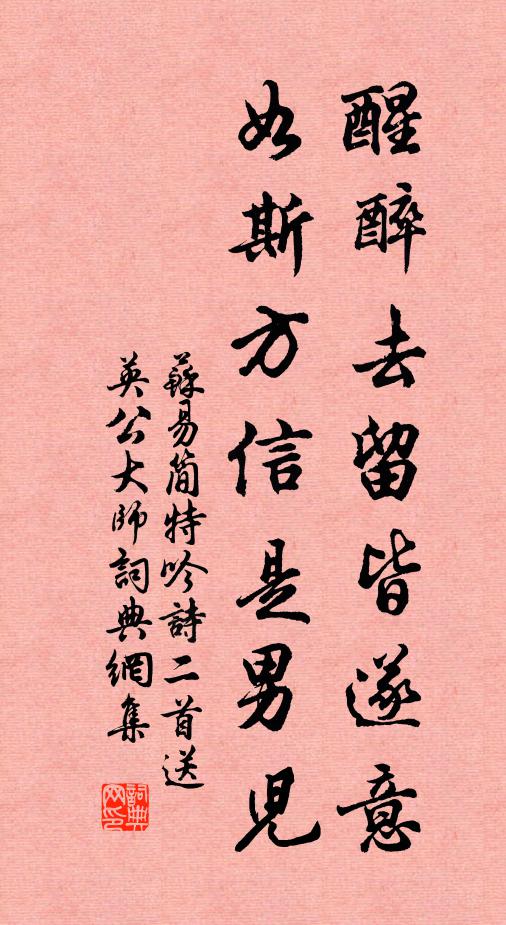 醒醉去留皆遂意
如斯方信是男兒
蘇易簡特吟詩二首送
英公大師詞典網集
詞典
网印